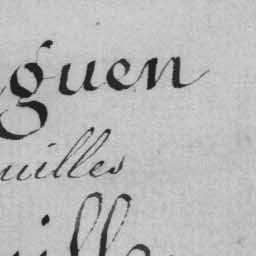 guen
uilles
ille